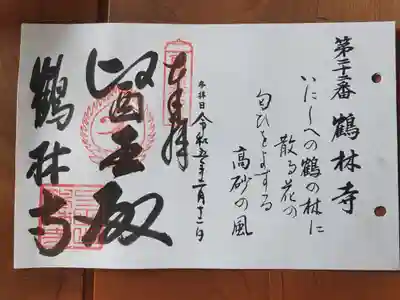 第二十三番 鶴林寺
いにしへの鶴の林に
散る花の
匂ひをよする
高砂の風
参拝日 令和五年二月十二日
奉拝
醫王殿
鶴林寺